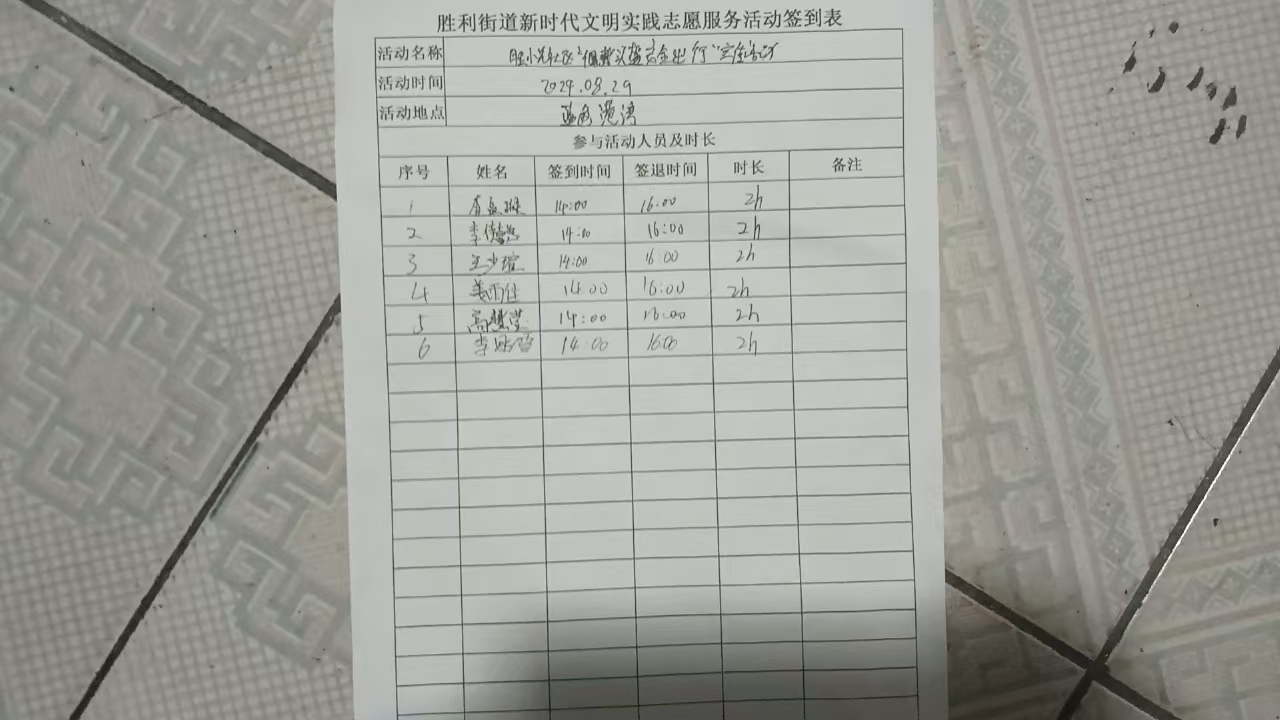 胜利街道新时代文明实践志愿服务活动签到表
活动名称 社区“佩戴头盔安全出行”宣传活动
活动时间 2024.08.29
活动地点 港湾
参与活动人员及时长
序号 姓名 签到时间 签退时间 时长 备注
1 14:00 16:00 2h
2 李 14:00 16:00 2h
3 王少 14:00 16:00 2h
4 姜雨佳 14:00 16:00 2h
5 高慧莹 14:00 16:00 2h
6 李 14:00 16:00 2h